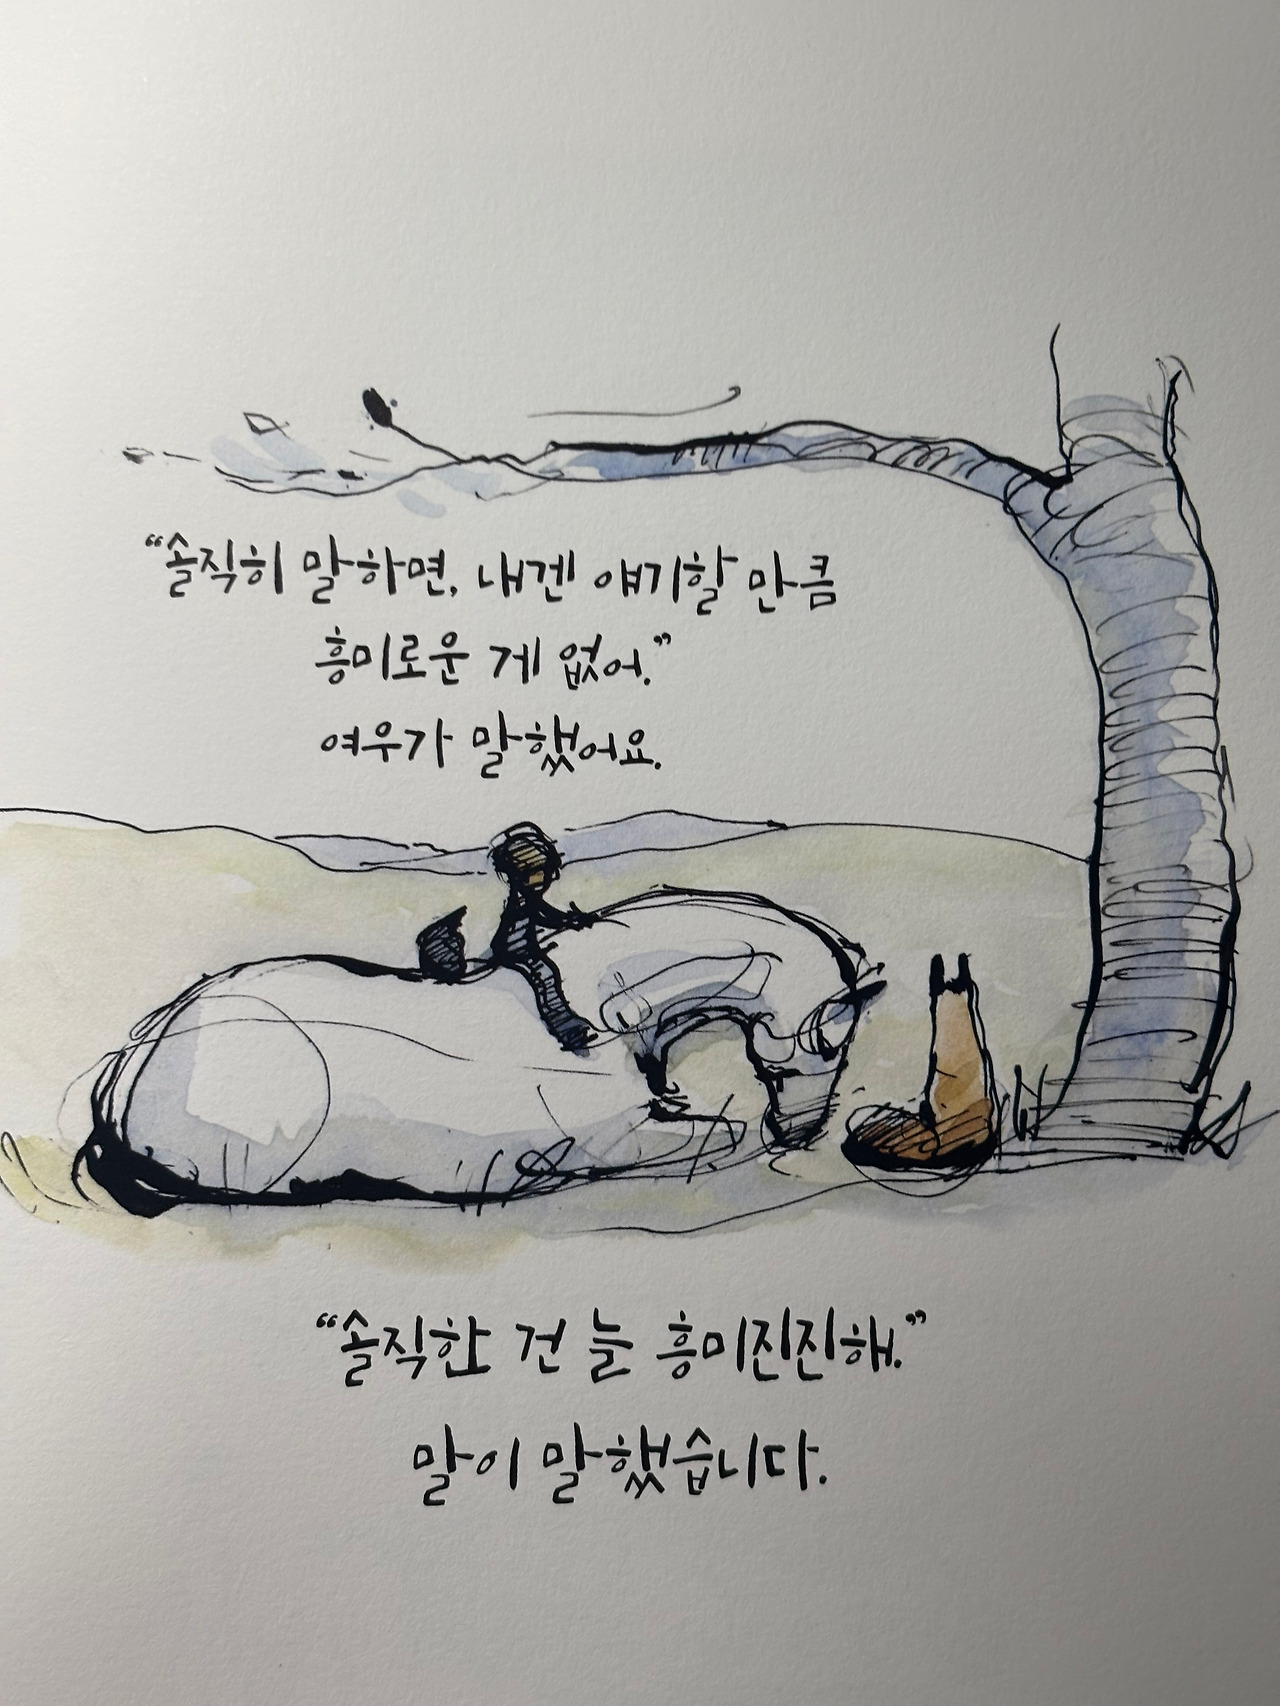 “솔직히 말하면, 내겐 얘기할 만큼
흥미로운 게 없어.”
여우가 말했어요.
“솔직한 건 늘 흥미진진해.”
말이 말했습니다.